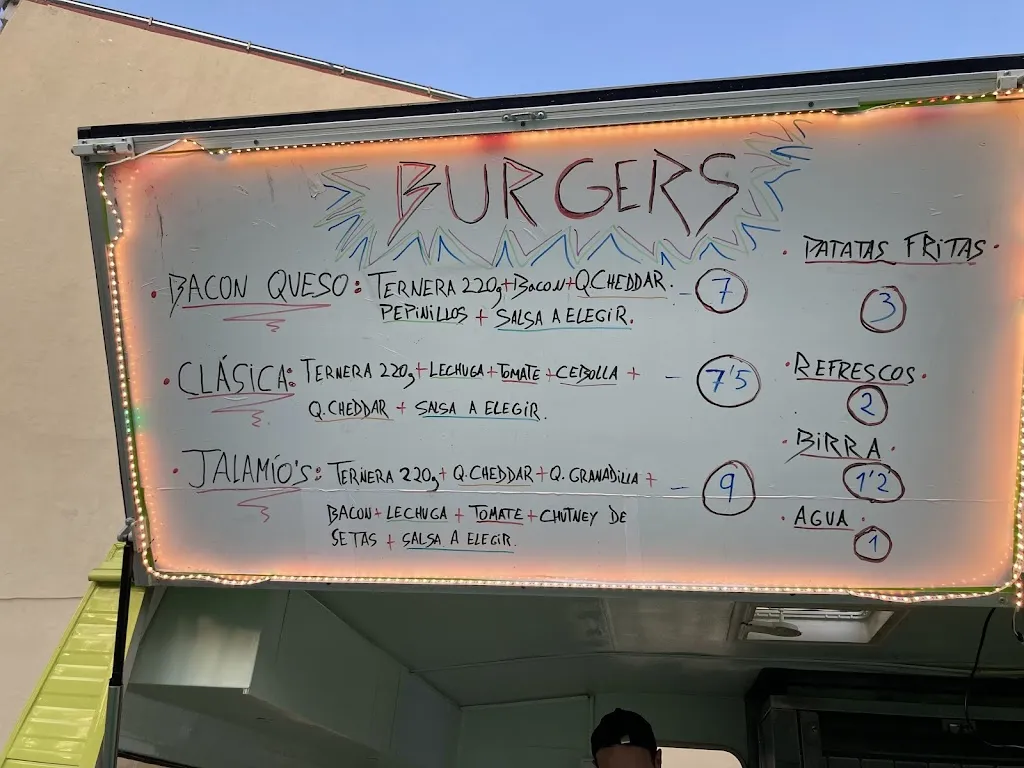 BURGERS
• BACON QUESO: TERNERA 220g + BACON + Q.CHEDDAR. - 7
PEPINILLOS + SALSA A ELEGIR.
• CLÁSICA: TERNERA 220g + LECHUGA + TOMATE + CEBOLLA + - 7'5
Q. CHEDDAR + SALSA A ELEGIR.
• JALAMÍO'S: TERNERA 220g + Q. CHEDDAR + Q. GRANADILLA + - 9
BACON + LECHUGA + TOMATE + CHUTNEY DE
SETAS + SALSA A ELEGIR.
• PATATAS FRITAS •
3
• REFRESCOS •
2
• BIRRA •
1'2
• AGUA •
1